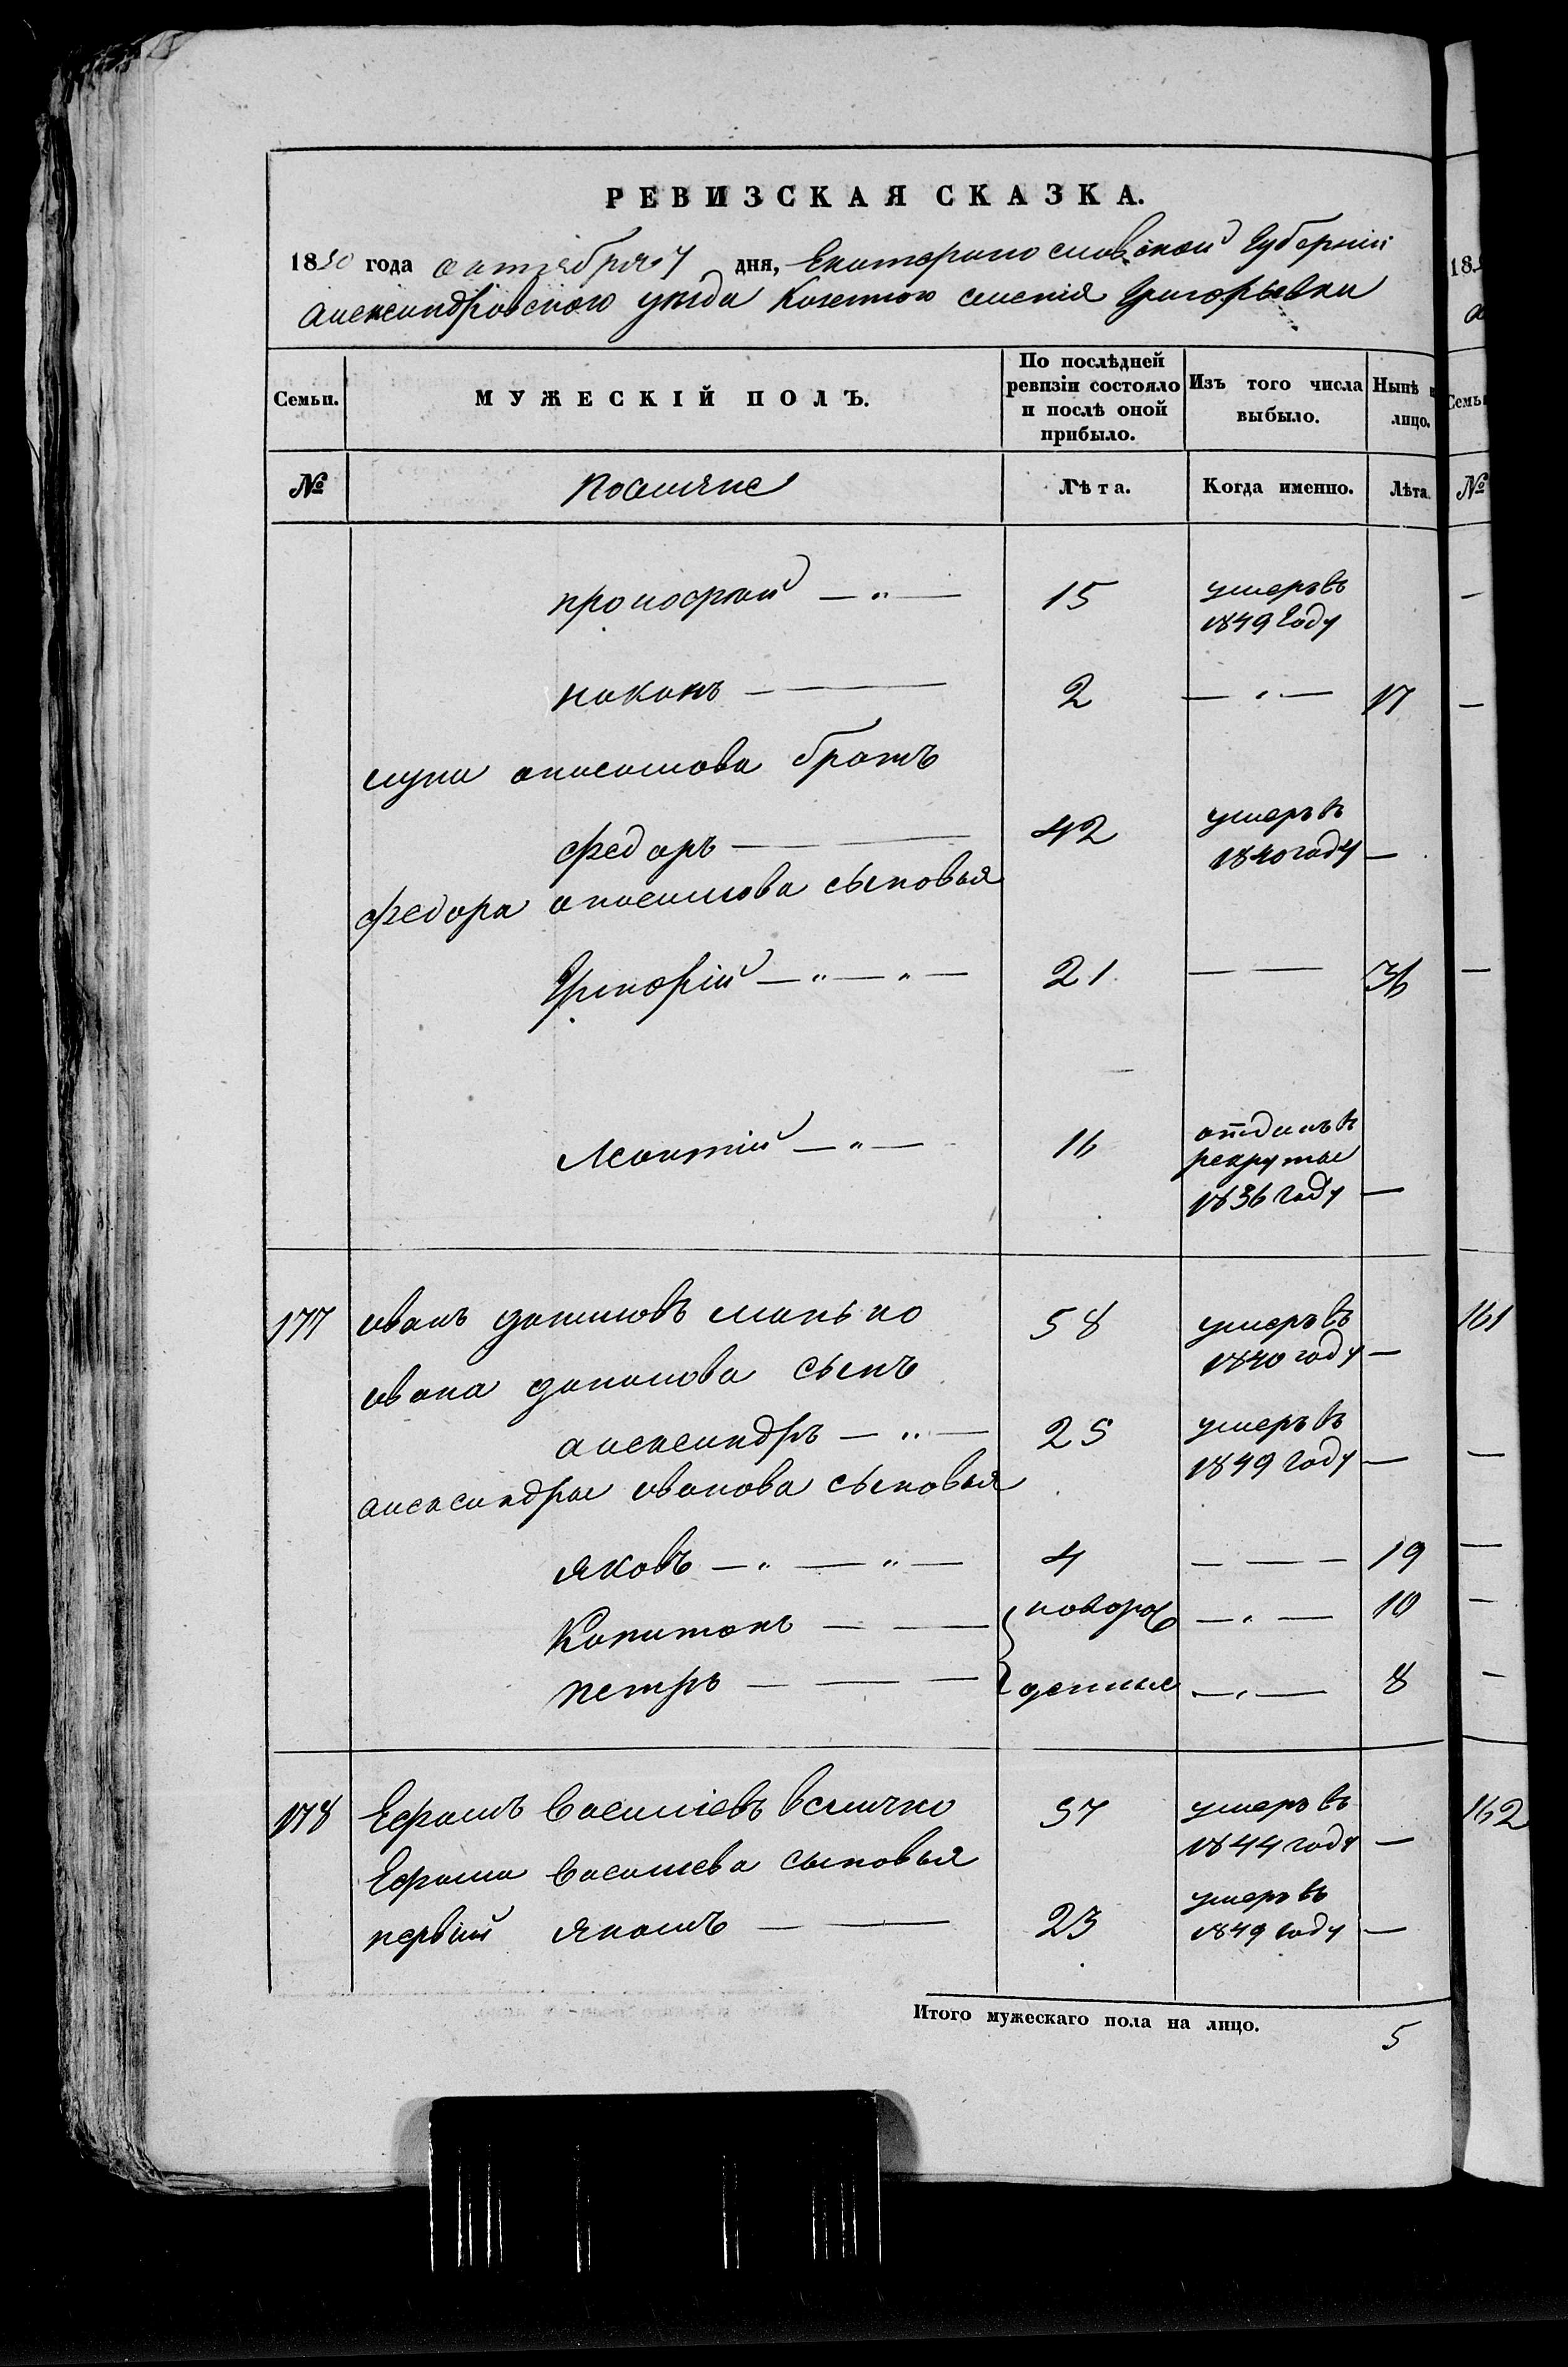 РЕВИЗСКАЯ СКАЗКА.
1850 года октября 7 дня, Екатеринославской Губернии
александровского уезда Казенного селения Григорьевки
Семьи. МУЖЕСКІЙ ПОЛЪ. По послѣдней ревизіи состояло и послѣ оной прибыло. Изъ того числа выбыло. Нынѣ лицо.
№ поселяне Лѣта. Когда именно. Лѣта.
прокофий — „ — 15 умеръ въ 1849 Году
никонъ — — 2 — „ — 17
лупы анисимова братъ
федоръ — — 42 умеръ въ 1840 году —
федора анисимова сыновья
Григорій — „ — „ — 21 — — 36
Леонтий — „ — 16 отданъ в рекруты 1836 году —
177 иванъ даниловъ манько 58 умеръ въ 1840 году —
ивана данилова сынъ
александръ — „ — 25 умеръ въ 1849 году —
александра иванова сыновья
яковъ — „ — „ — 4 — — — 19
Капитонъ — — новорож — „ — 10
петръ — — — денные — „ — 8
178 Ефимъ Василіевъ величко 57 умеръ въ 1844 году —
Ефима Василиева сыновья
первый якимъ — — 23 умеръ въ 1849 году —
Итого мужескаго пола на лицо. 5
18
№
161
162